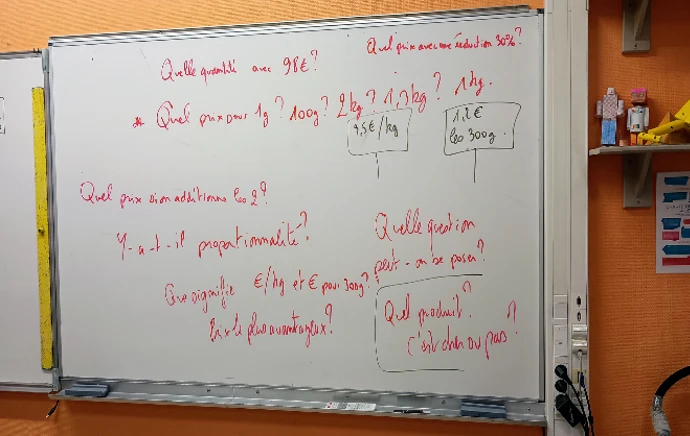 Quel prix avec une réduction 30%?
Quelle quantité avec 98€?
Quel prix pour 1g? 100g? 2kg? 1,7kg? 1kg.
9,5€/kg
1,2€
les 300g.
Quel prix si on additionne les 2?
Y-a-t-il proportionnalité?
Quelle question
peut-on se poser?
Que signifie €/kg et € pour 300g?
le plus avantageux?
Quel produit?
C'est cher ou pas?